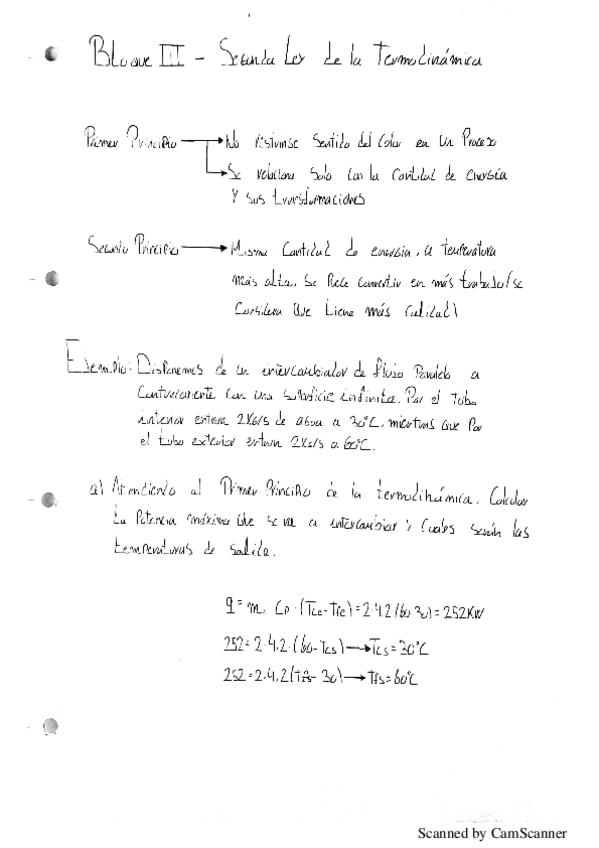 Bloque III - Segunda Ley de la Termodinámica
Primer Principio → No restringe Sentido del Calor en un Proceso
→ Se relaciona Solo con la Cantidad de Energía
Y sus transformaciones
Segundo Principio → Misma Cantidad de energía, a temperatura
más alta, se Puede convertir en más trabajo (se
Considera que tiene más calidad)
Ejemplo: Disponemos de un intercambiador de flujo Paralelo a
Contracorriente con una superficie infinita. Por el tubo
interior entran 2Kg/s de agua a 30°C, mientras que Por
el tubo exterior entran 2Kg/s a 60°C.
a) Atendiendo al Primer Principio de la termodinámica. Calcular
la Potencia máxima que se va a intercambiar y Cuales serán las
temperaturas de salida.
q = m. Cp. (Tce-Tfe) = 2·4.2(60-30) = 252KW
252 = 2·4.2·(60-Tcs) → Tcs = 30°C
252 = 2·4.2(Tfs-30) → Tfs = 60°C
Scanned by CamScanner